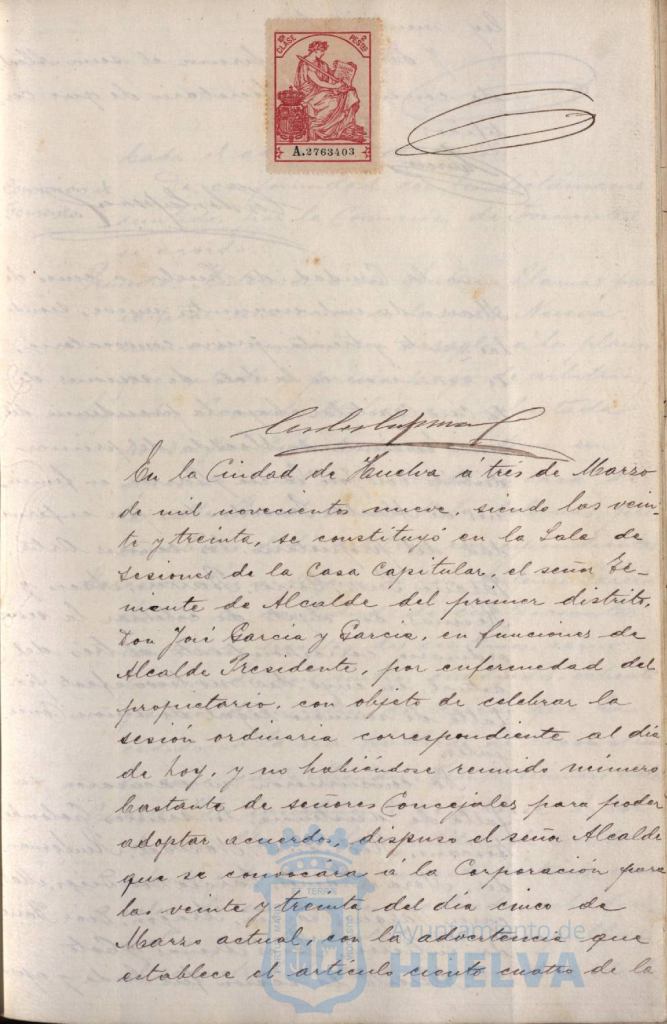 10ª CLASE
2 PESTAS
A.2763403
En la Ciudad de Huelva á tres de Marzo
de mil novecientos nueve, siendo las vein-
te y treinta, se constituyó en la Sala de
sesiones de la Casa Capitular, el señor Te-
niente de Alcalde del primer distrito,
Don José Garcia y Garcia, en funciones de
Alcalde Presidente, por enfermedad del
propietario, con objeto de celebrar la
sesión ordinaria correspondiente al dia
de hoy, y no habiéndose reunido número
bastante de señores Concejales para poder
adoptar acuerdos, dispuso el señor Alcalde
que se convocára á la Corporación para
las veinte y treinta del dia cinco de
Marzo actual, con la advertencia que
establece el artículo ciento cuatro de la
Ayuntamiento de
HUELVA